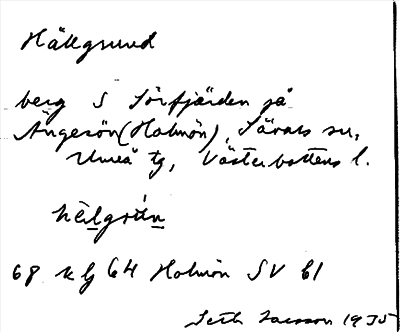 Hällgrund
berg S Sörfjärden på
Ängesön (Holmön), Sävars sn,
Umeå tg, Västerbottens l.
hèlgrún
68 k lj 64 Holmön SV bl
Seth Larsson 1935